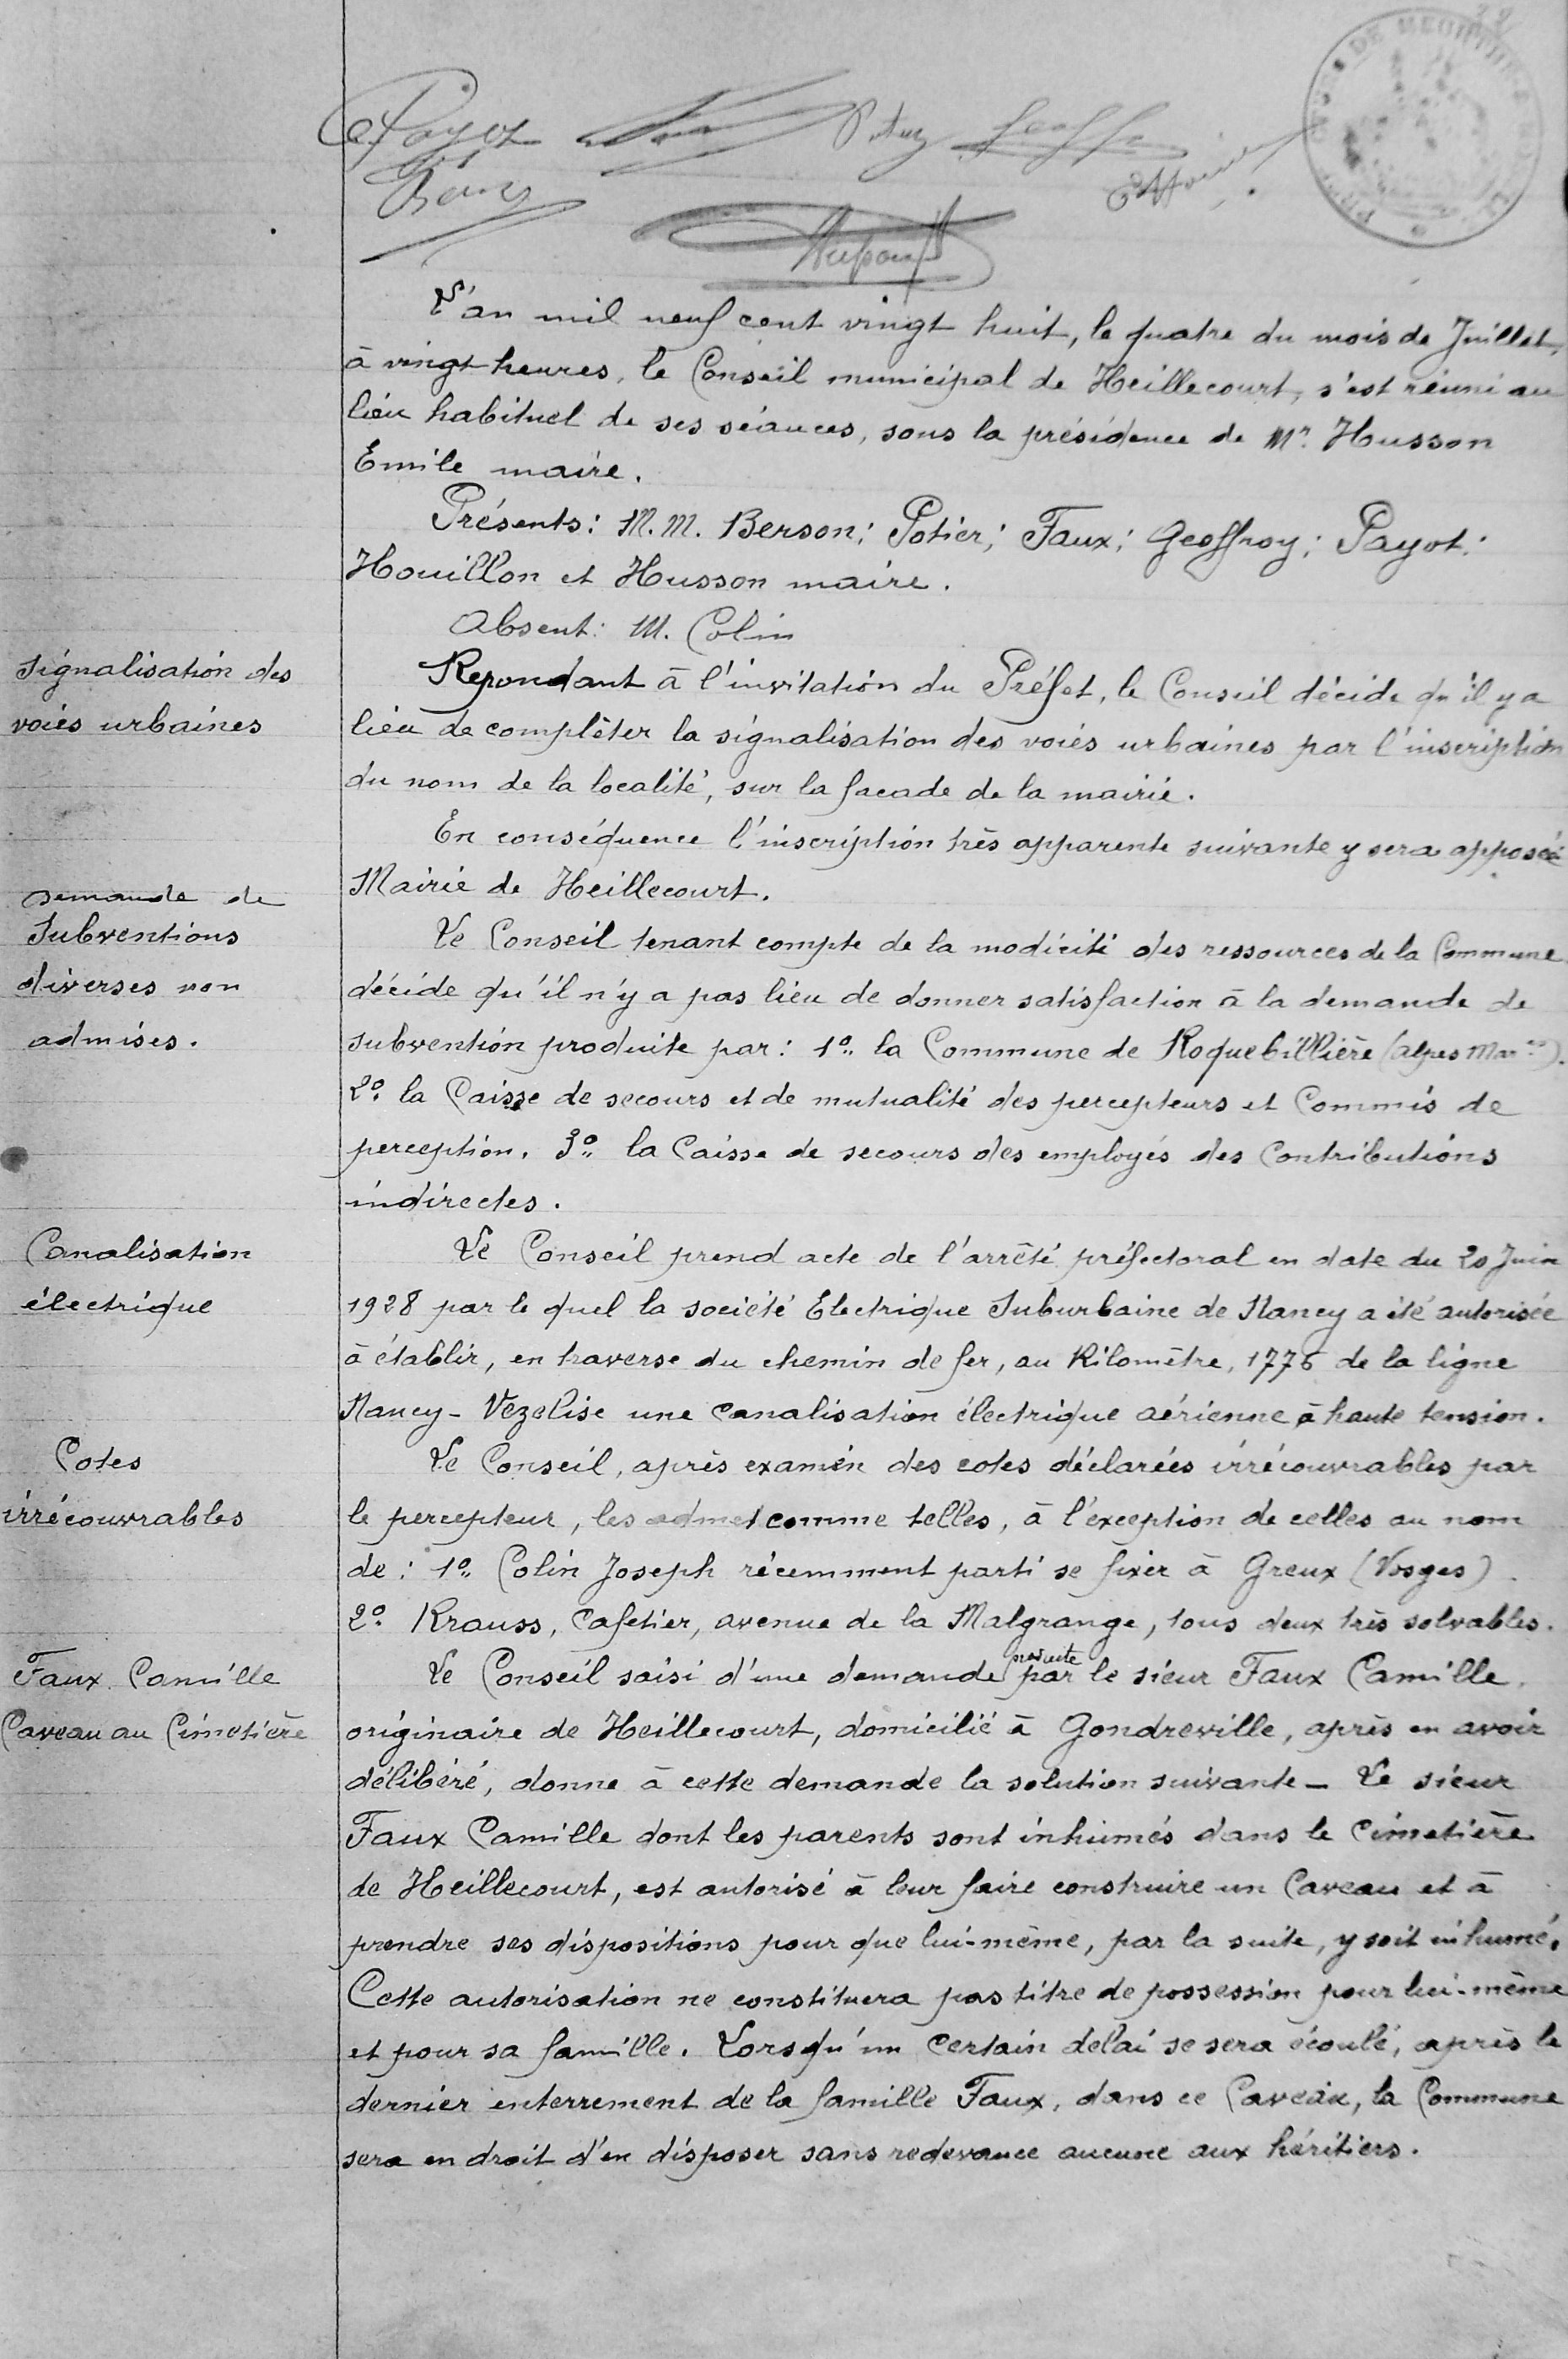 Payot
L'an mil neuf cent vingt huit, le quatre du mois de Juillet,
à vingt heures, le Conseil municipal de Heillecourt, s'est réuni au
lieu habituel de ses séances, sous la présidence de Mr. Husson
Emile maire.
Présents: M.M. Berson; Potier; Faux; Geoffroy; Payot;
Houillon et Husson maire.
Absent: M. Colin
Signalisation des
voies urbaines
Repondant à l'invitation du Préfet, le Conseil décide qu'il y a
lieu de complèter la signalisation des voies urbaines par l'inscription
du nom de la localité, sur la facade de la mairie.
En conséquence l'inscription très apparente suivante y sera apposée
Mairie de Heillecourt.
Demande de
Subventions
diverses non
admises.
Le Conseil tenant compte de la modicité des ressources de la Commune
décide qu'il n'y a pas lieu de donner satisfaction à la demande de
subvention produite par: 1º la Commune de Roquebillière (Alpes Mar mes).
2º la Caisse de secours et de mutualité des percepteurs et Commis de
perception. 3º la Caisse de secours des employés des Contributions
indirectes.
Canalisation
électrique
Le Conseil prend acte de l'arrêté préfectoral en date du 20 Juin
1928 par le quel la société Electrique Suburbaine de Nancy a été autorisée
à établir, en traverse du chemin de fer, au Kilomètre, 1776 de la ligne
Nancy - Vezelise une canalisation électrique aérienne à haute tension.
Cotes
irrécouvrables
Le Conseil, après examen des cotes déclarées irrécouvrables par
le percepteur, les admet comme telles, à l'exception de celles au nom
de: 1º Colin Joseph récemment parti se fixer à Greux (Vosges).
2º Krauss, Cafetier, avenue de la Malgrange, tous deux très solvables.
Faux Camille
Caveau au Cimetière
Le Conseil saisi d'une demande par le sieur Faux Camille,
originaire de Heillecourt, domicilié à Gondreville, après en avoir
délibéré, donne à cette demande la solution suivante - Le sieur
Faux Camille dont les parents sont inhumés dans le Cimetière
de Heillecourt, est autorisé à leur faire construire un Caveau et à
prendre ses dispositions pour que lui-même, par la suite, y soit inhumé.
Cette autorisation ne constituera pas titre de possession pour lui-même
et pour sa famille. Lorsqu'un certain délai se sera écoulé, après le
dernier enterrement de la famille Faux, dans ce Caveau, la Commune
sera en droit d'en disposer sans redevance aucune aux héritiers.